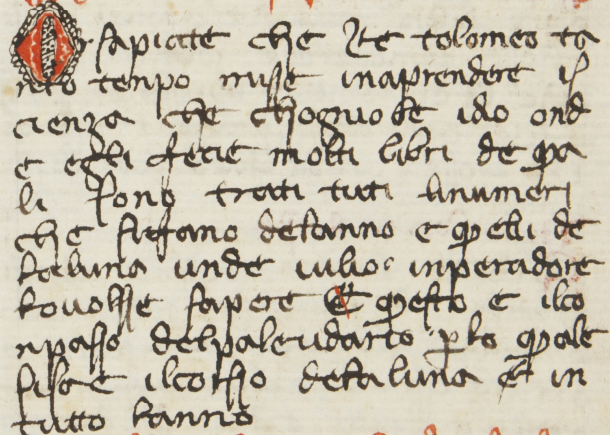 Or sapiate che Re tolomeo ta
nto tenpo mise inaprendere is
cienza che chognobe idio ond
e egli fecie molti libri de qua
li sono trati tuti linumeri
che si fano delanno e quelli de
laluna unde iulio inperadore
lovolsse sapere Et questo e ilco
npasso delpalendario per lo quale
sisae ilcorsso delaluna Et in
tutto lanno